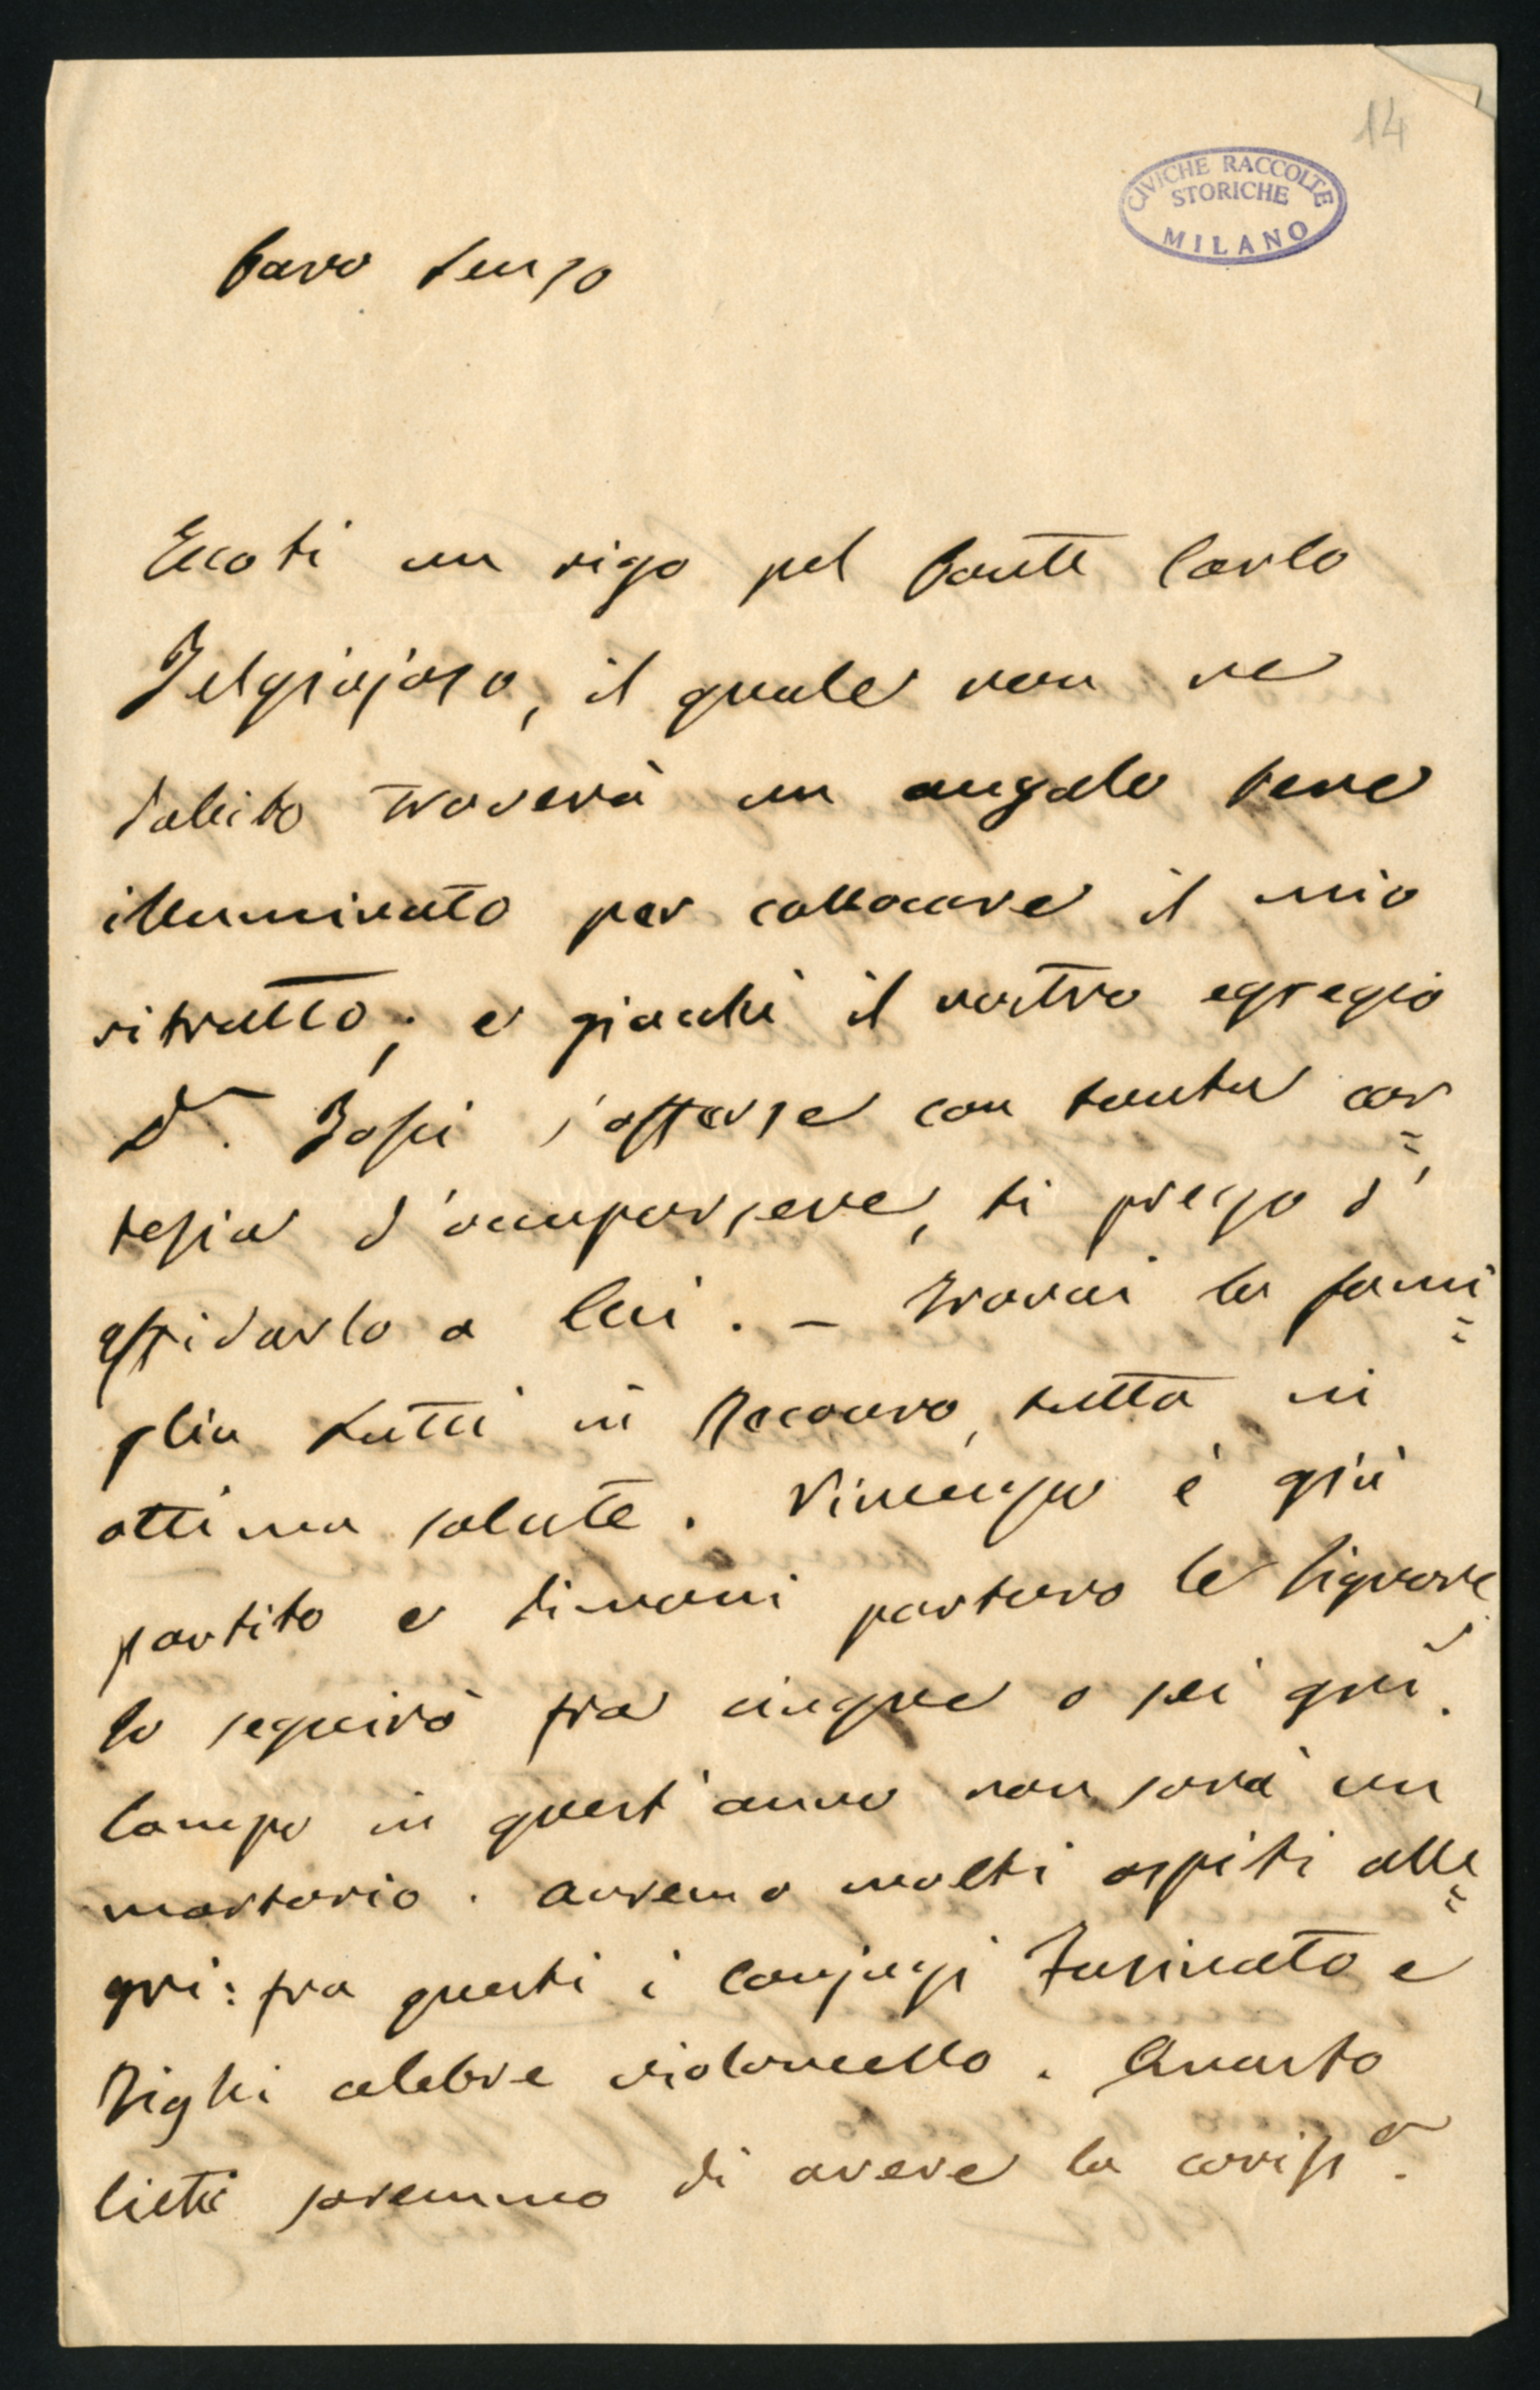 14
CIVICHE RACCOLTE
STORICHE
MILANO
Caro
Eccoti un rigo pel Conte Carlo
Belgiojoso, il quale non ne
dubito troverà un angolo bene
illuminato per collocare il mio
ritratto; e giacchè il nostro egregio
Dr. s'offerse con tanta cor=
tesia d'occuparsene, ti prego d'
affidarlo a lui. – Trovai la fami=
glia tutti in Recoaro, tutta in
ottima salute. Vincenzo è già
partito e dimani partono le Signore
lo seguirò fra cinque o sei gni.
Campo in quest'anno non sarà un
mortorio. Avremo molti ospiti alle=
gri: fra questi i conjugi Fusinato e
celebre violoncello. Quanto
lieti saremmo di avere la